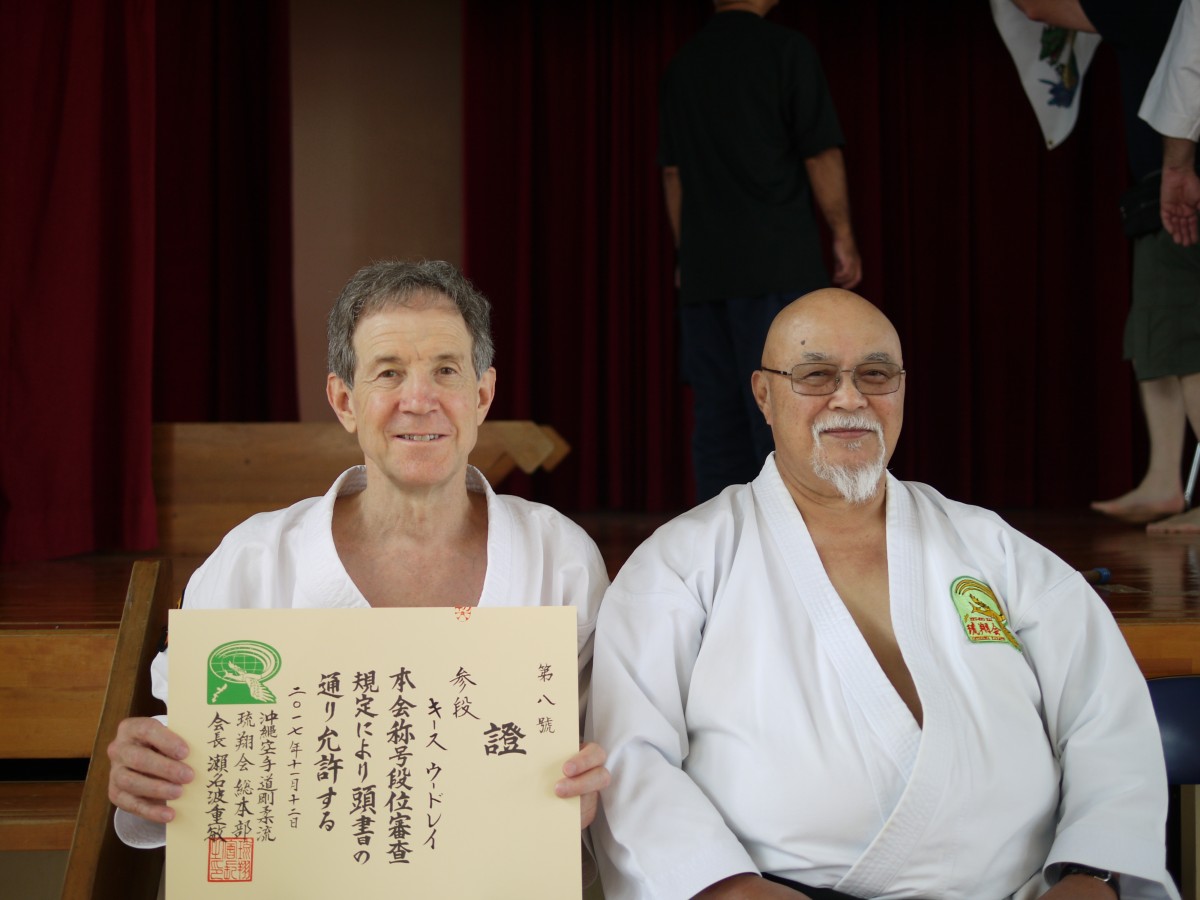 第八號
證
参段
キース ウードレイ
本会称号段位審査
規定により頭書の
通り允許する
二〇一七年十一月十二日
沖縄空手道剛柔流
琉翔会 総本部
会長 瀬名波重敏
琉翔会